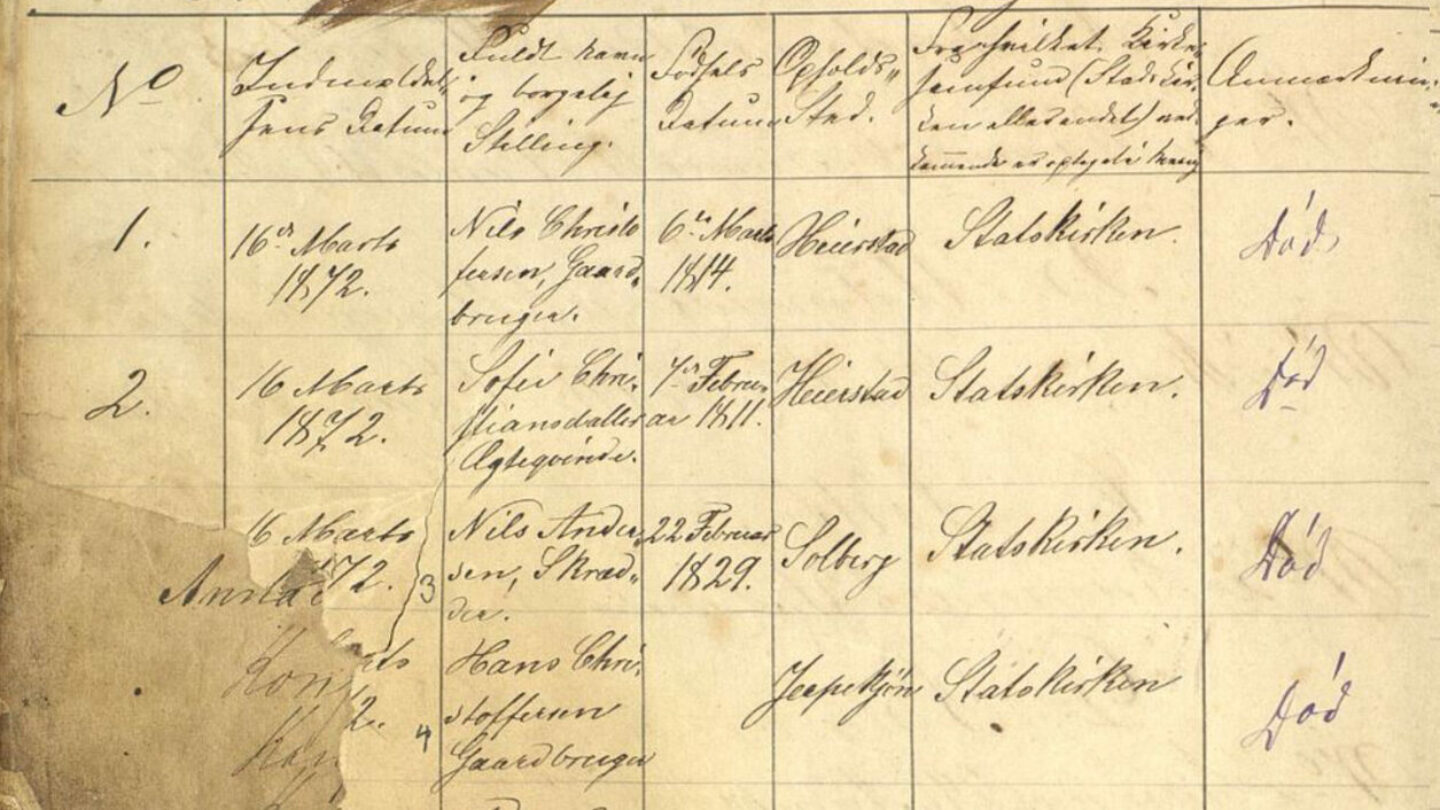 No
Indmeldel-
sens Datum
Fuldt Navn
og borgerlig
Stilling.
Fødsels
Datum
Opholds-
Sted.
Fra hvilket Kirke-
samfund (Statskir-
ken eller andet) ved-
kommende er optaget i Menig
Anmærknin-
ger.
1.
16de Marts
1872.
Nils Christo
fersen, Gaard-
bruger.
6te Marts
1814.
Heierstad
Statskirken.
Død
2.
16 Marts
1872.
Sofie Chri-
stiansdatter
Ægteqvinde.
7de Febru-
ar 1811.
Heierstad
Statskirken.
Død
3
16 Marts
72.
Nils Ander-
sen, Skræd-
der.
22 Februar
1829.
Solberg
Statskirken.
Død
4
ts
2.
Hans Chri-
stoffersen
Gaardbruger
Jerpekjøn
Statskirken
Død